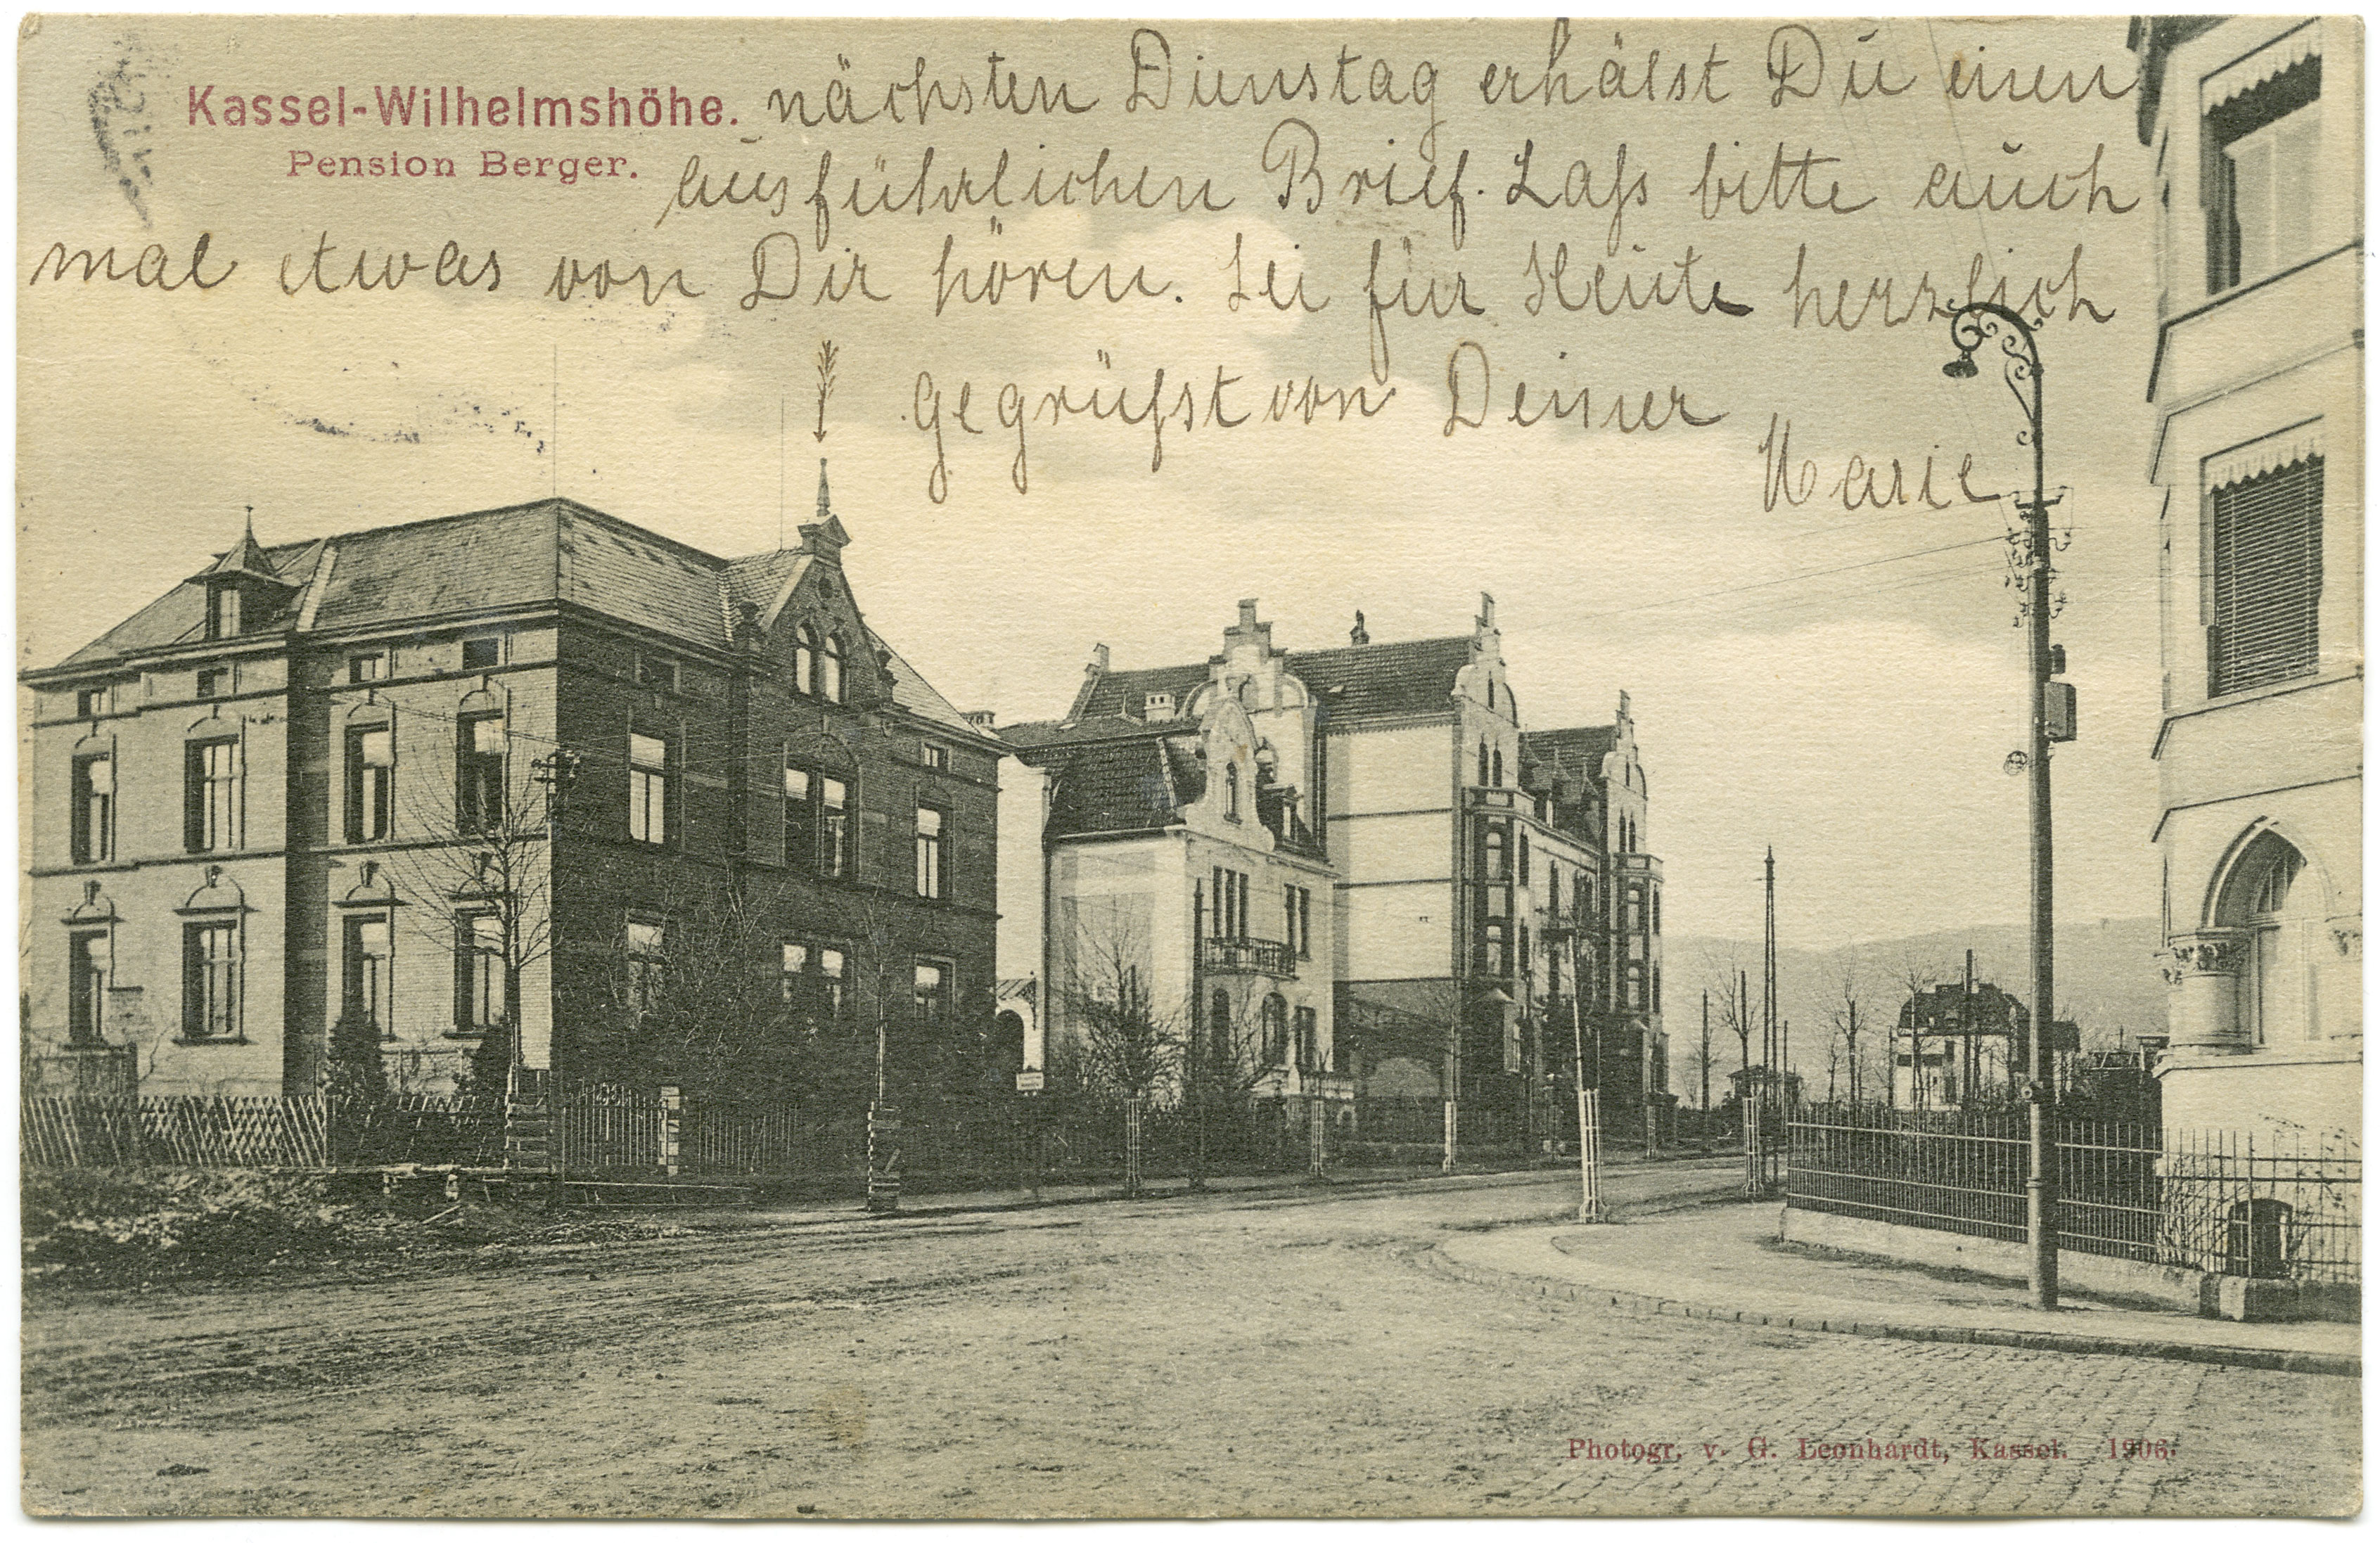 Kassel-Wilhelmshöhe.
Pension Berger.
nächsten Dienstag erhälst Du einen
ausführlichen Brief. Lass bitte auch
mal etwas von Dir hören. Sei für Heute herzlich
gegrüsst von Deiner
Marie
Photogr. v. G. Leonhardt, Kassel. 1906.